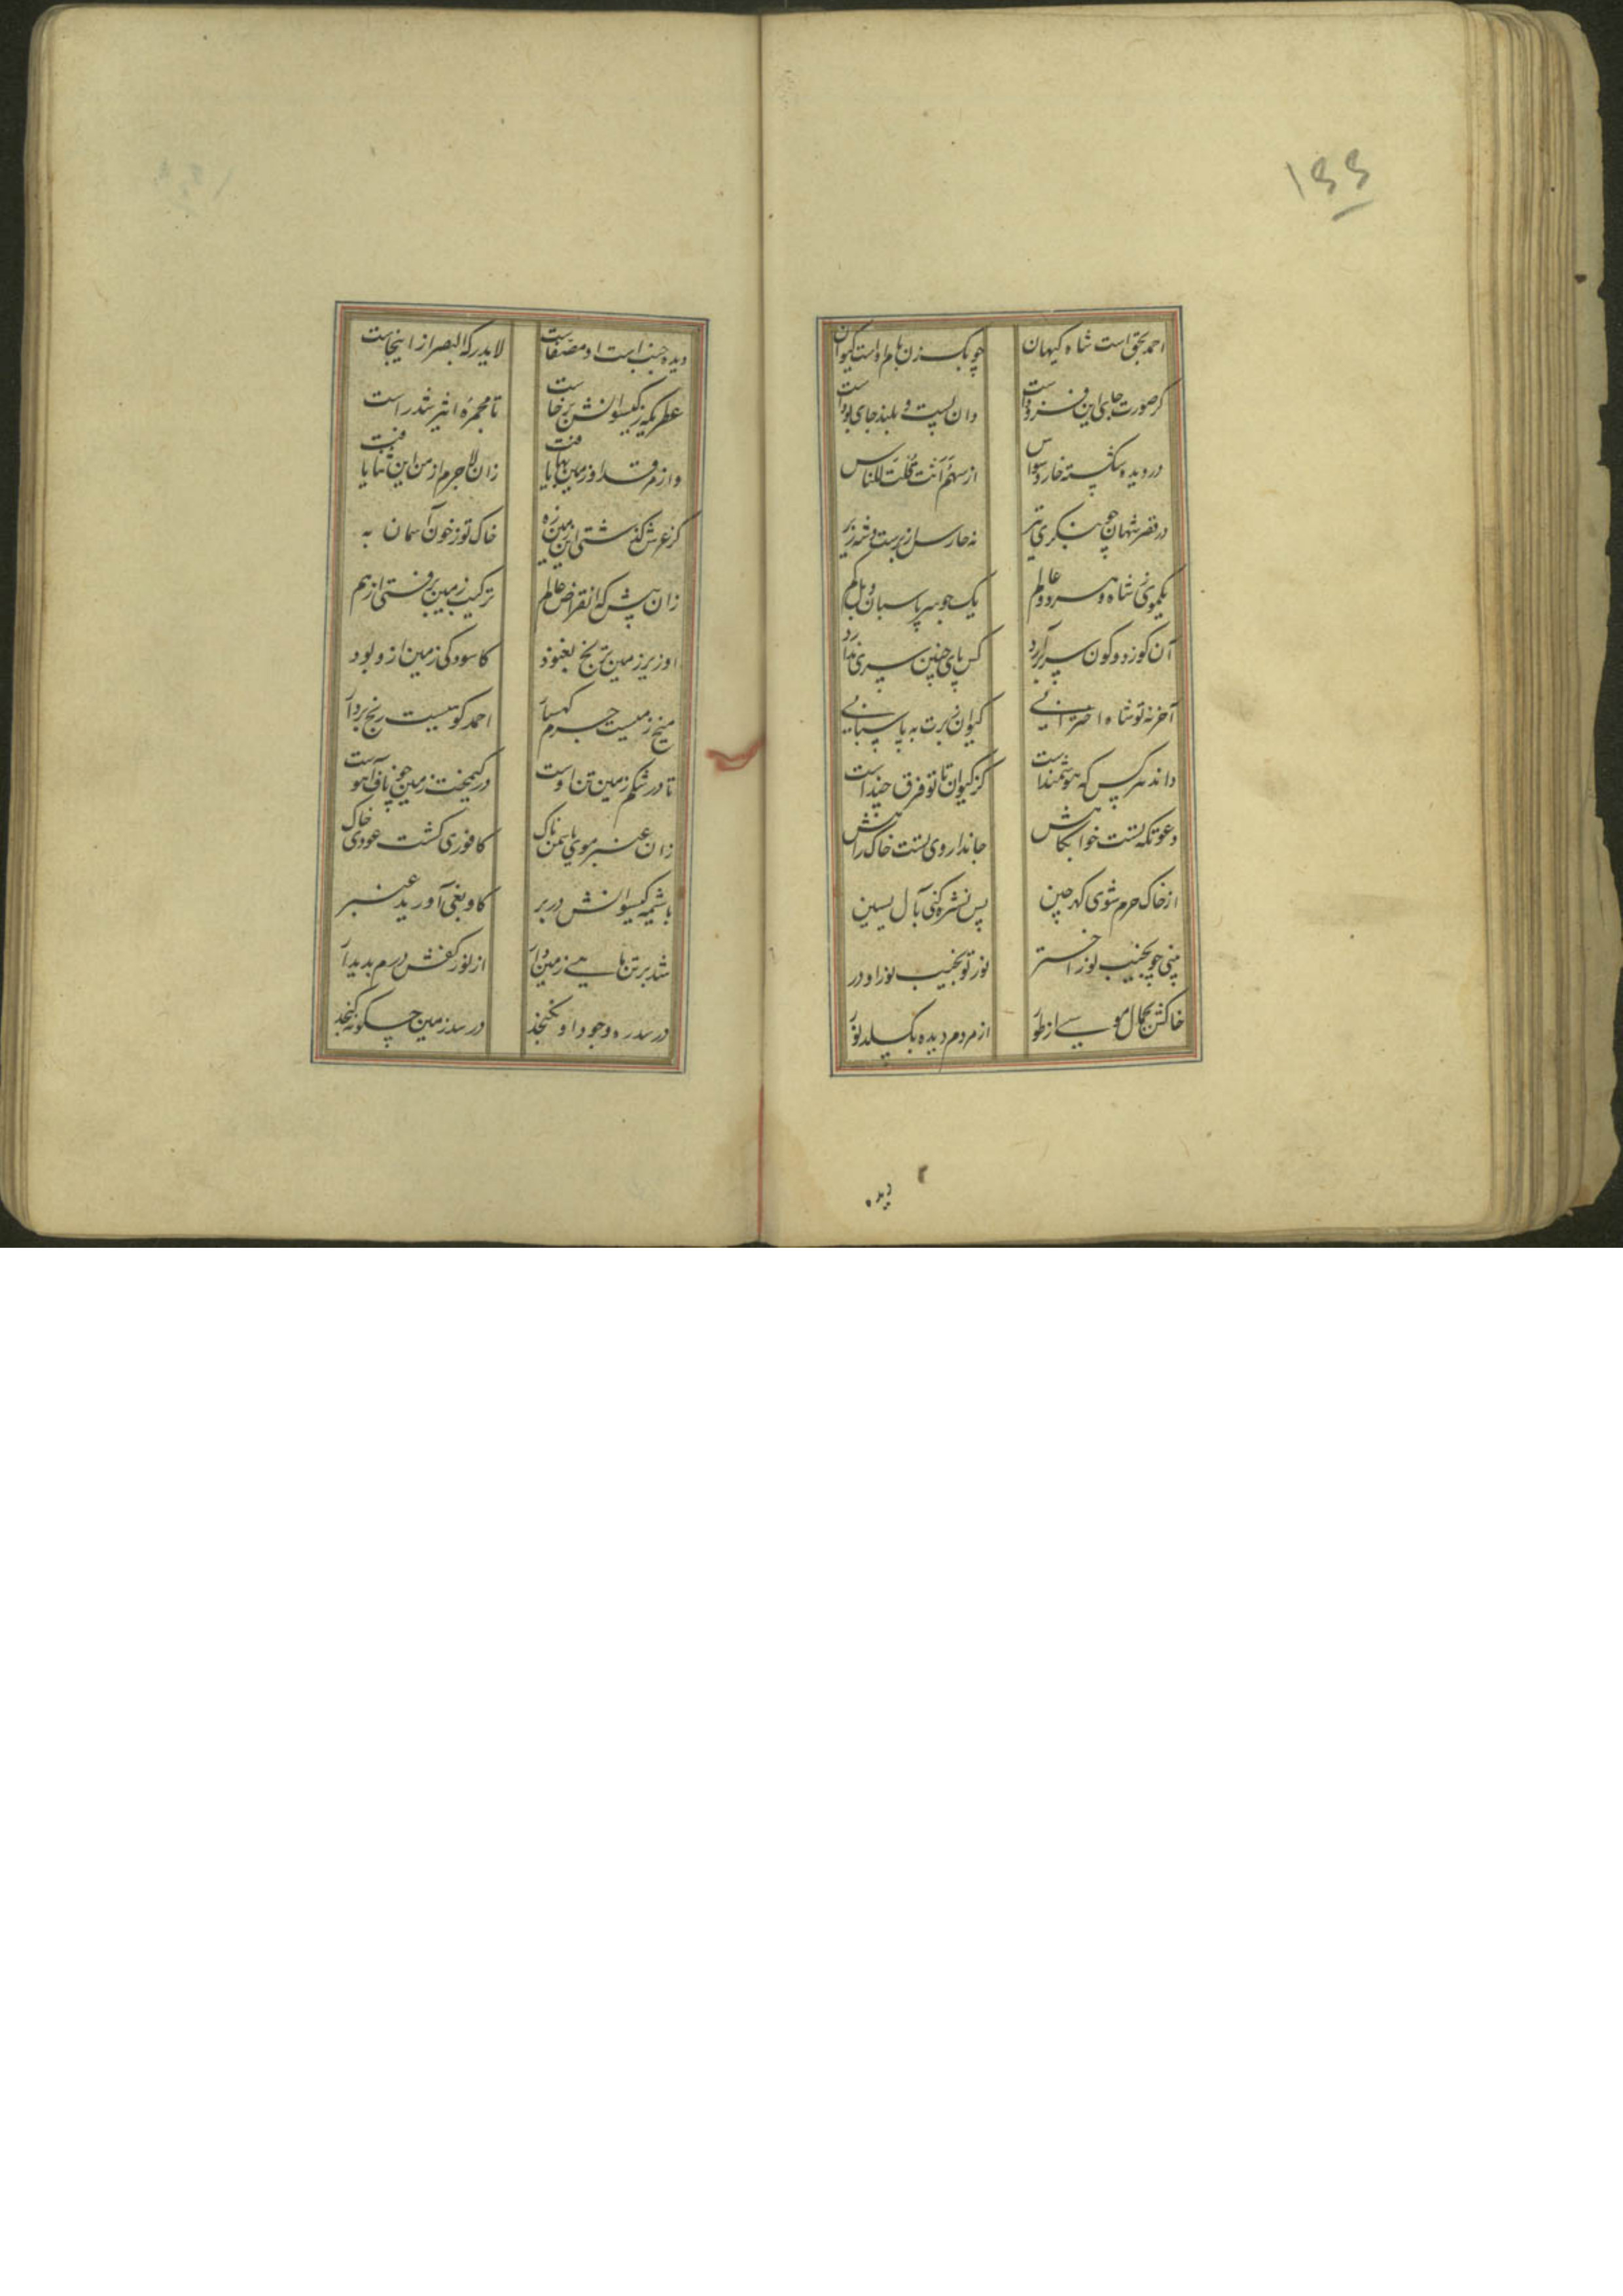 ۱۴۴
احمد بحق است شاه کیهان
چوبک زن بام اوست کیوان
گر صورت جای این فزوداست
دان پست و بلند جای بوداست
در دیده شکسته خار وسواس
از سهم أَنْتَ قُلْتَ للناس
در قصر شهان چو بنگری تیز
نه حارس از برست و شه زیر
یکموی ز شاه و سر دو عالم
یک جو سر پاسبان و بل کم
آن کو ز دو کون سر برآرد
کس پای چنین سری ندارد
آخر نه تو شاه اخترانی
کیوان ز برت به پاسبانی
داند هر کس که هوشمند است
کز کیوان تا تو فرق چند است
دعوتگه تست خوابگاهش
جانداروی تست خاک راهش
از خاک حرم شوی گهرچین
پس نشره کنی بآل یسین
بینی چو بجنب نور اختر
نور تو بجنب نور او در
خاکش بجمال موسی از طور
از مردم دیده بگسلد نور
دیده
دیده جنب است او مصفاست
لا یدرکه البصر از اینجاست
عطری که ز گیسوانش برخاست
تا مجمره اثیر شد راست
واز مرقد او زمین بها یافت
زان لاجرم از من این ثنا یافت
گر عرش کند سشتی این زمین زه
خاک تو ز خون آسمان به
زان پیش که انقراض عالم
ترکیب زمین برفتی از هم
او زیر زمین ترنج بغنود
کاسودگی زمین ازو بود
میخ زمیست جرم کهسار
احمد کوهیست رنج بردار
تا در شکم زمین تن اوست
در کیمخت زمین چو ناف آهوست
زان عنبر موی یاسمن ناک
کافوری گشت عودی خاک
با شمه گیسوانش در بر
گاو بغی آورید عنبر
شد بر تن ماهی زمین دار
از نور کفش درم پدیدار
در سدره وجود او نگنجد
در سد زمین چگونه گنجد